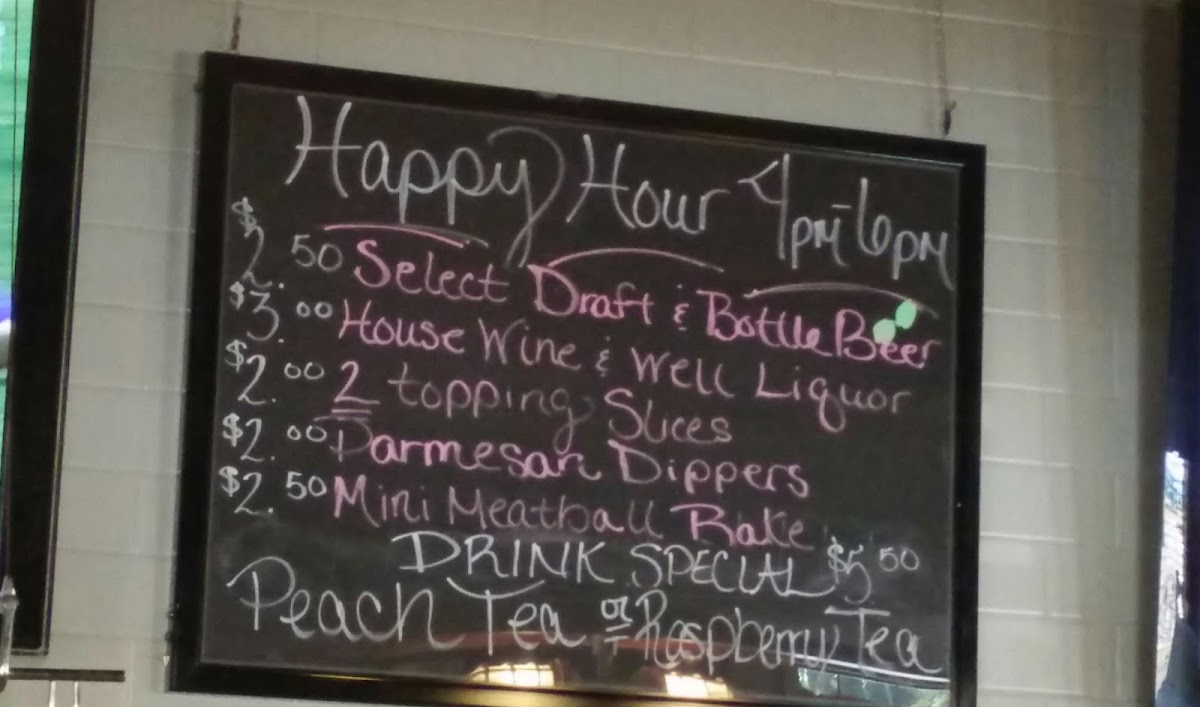 Happy Hour 4pm-6pm
$2.50 Select Draft & Bottle Beer
$3.00 House Wine & Well Liquor
$2.00 2 topping Slices
$2.00 Parmesan Dippers
$2.50 Mini Meatball Bake
DRINK SPECIAL $5.50
Peach Tea or Raspberry Tea